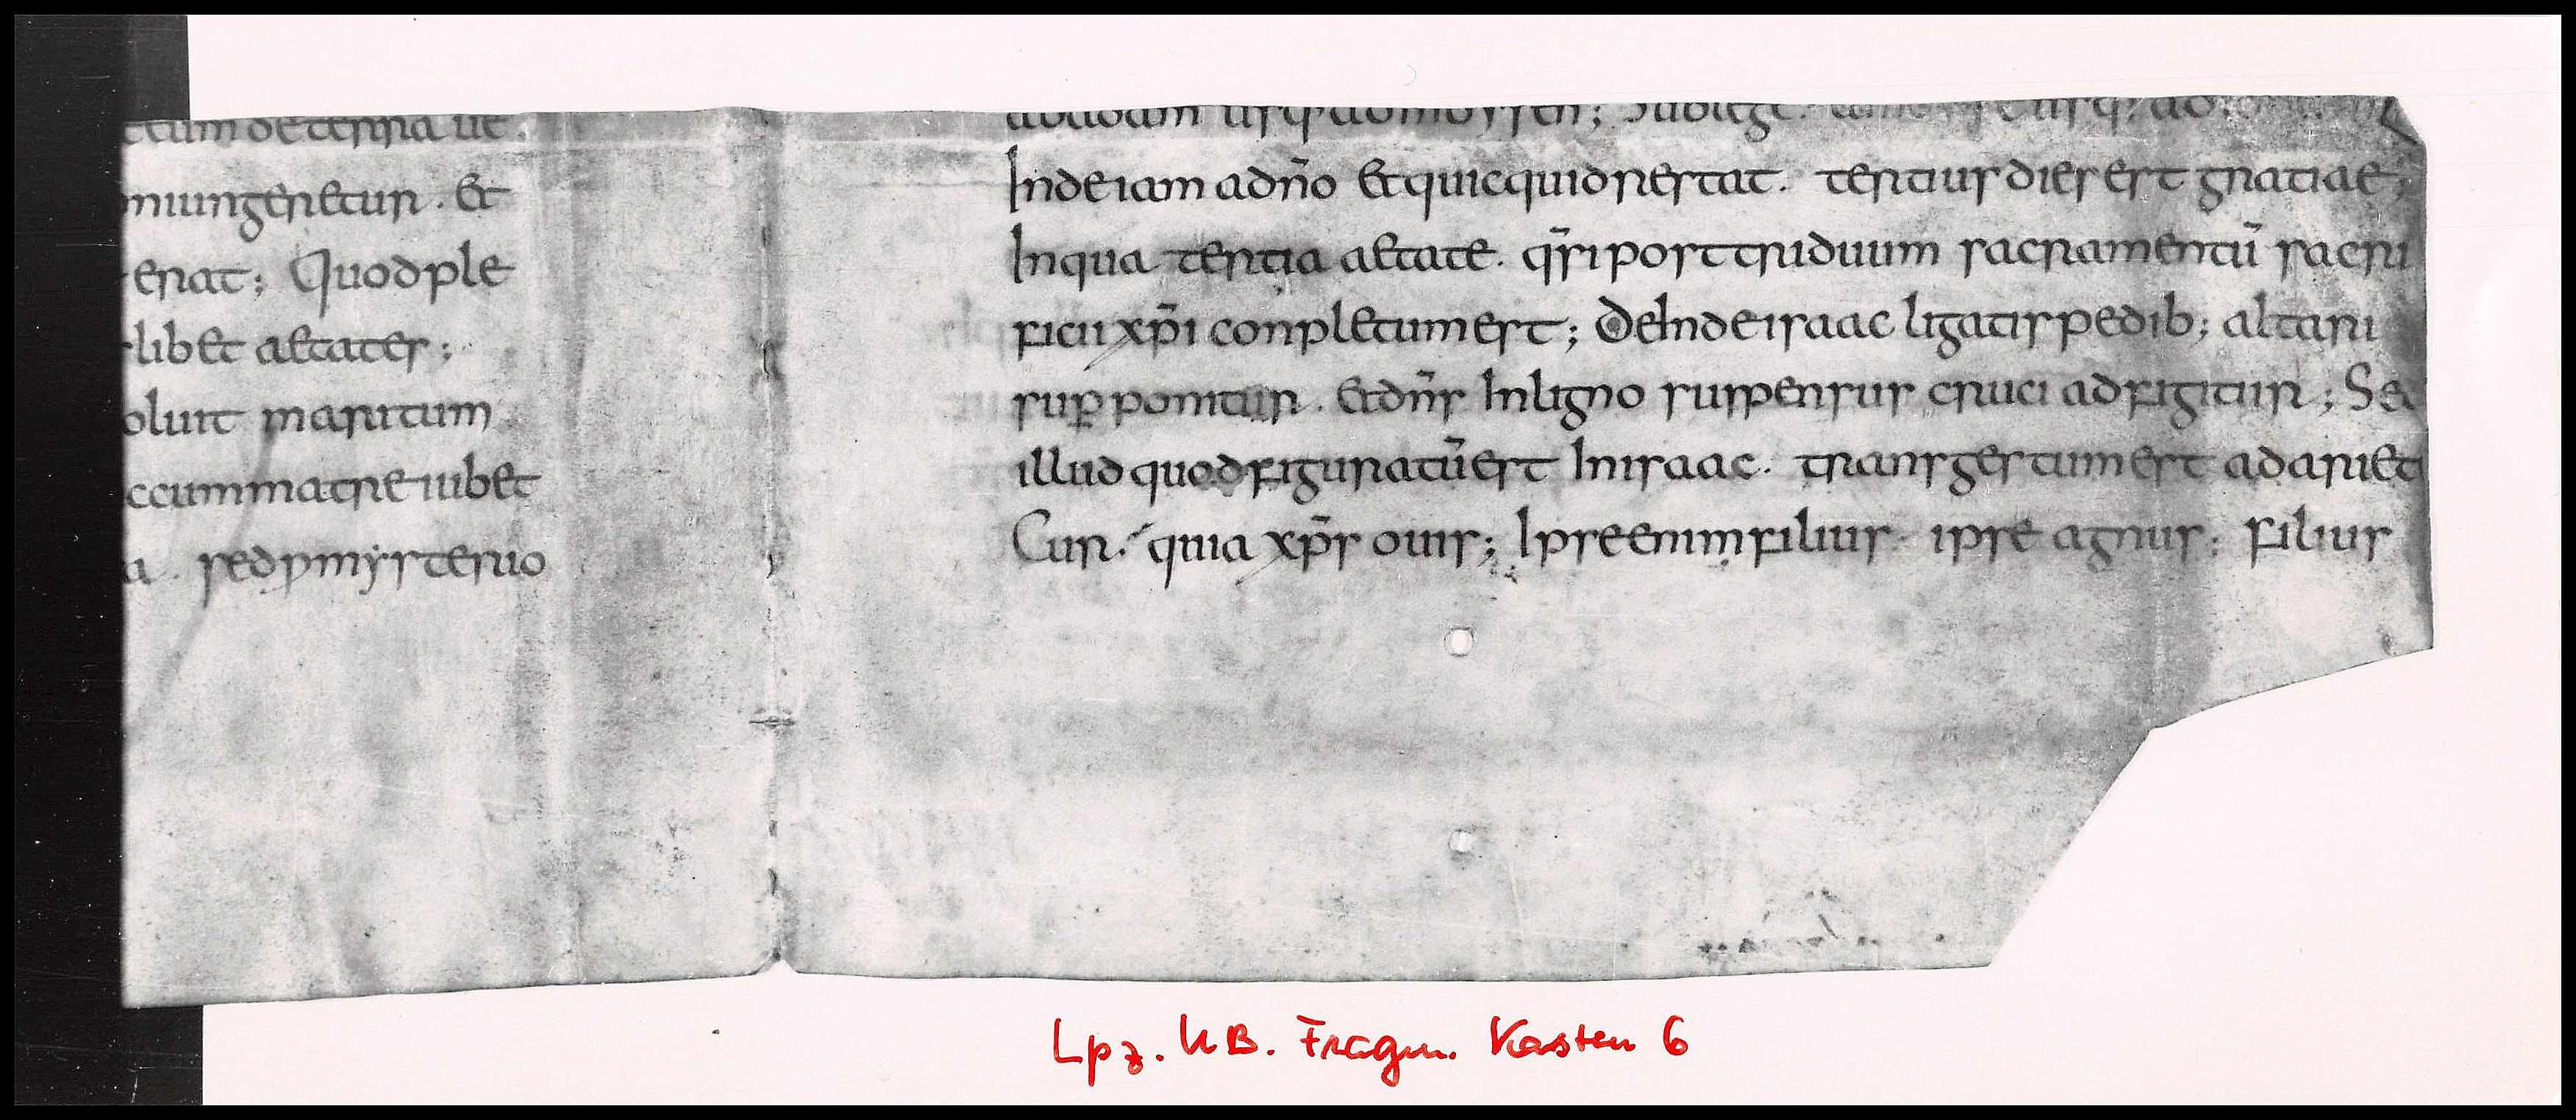 ccum de terra ue.
niungeretur . Et
erat; Quod ple
libet aetates;
oluit maritum
ccum matre iubet
a . sed p mysterio
ab adam usq; ad moysen; Sub lege. usq; ad
Inde iam a dn̄o Et quicquid restat. tertius dies est gratiae;
In qua tertia aetate. qs̄i post triduum sacramentū sacri
ficii xp̄i conpletum est; DeInde isaac ligatis pedib; altari
sup̱ponitur . Et dn̄s In ligno suspensus cruci adfigitur; Se
illud quod figuratū est In isaac. transgestum est ad ariet
Cur. quia xp̄s ouis; Ipse enim filius. ipse agnus; filius
Lpz. UB. Fragm. Kasten 6